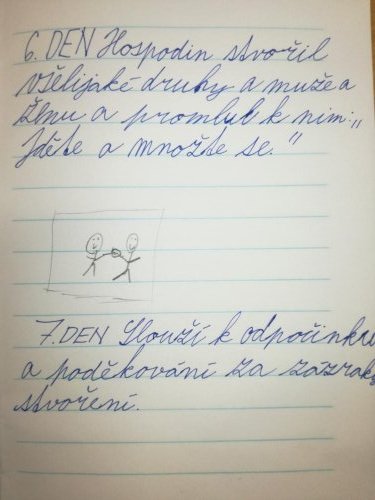 6. DEN Hospodin stvořil
všelijaké druhy a muže a
ženu a promlul k nim: „
Jděte a množte se."
7. DEN Slouží k odpočinku
a poděkování za zázrak
stvoření.